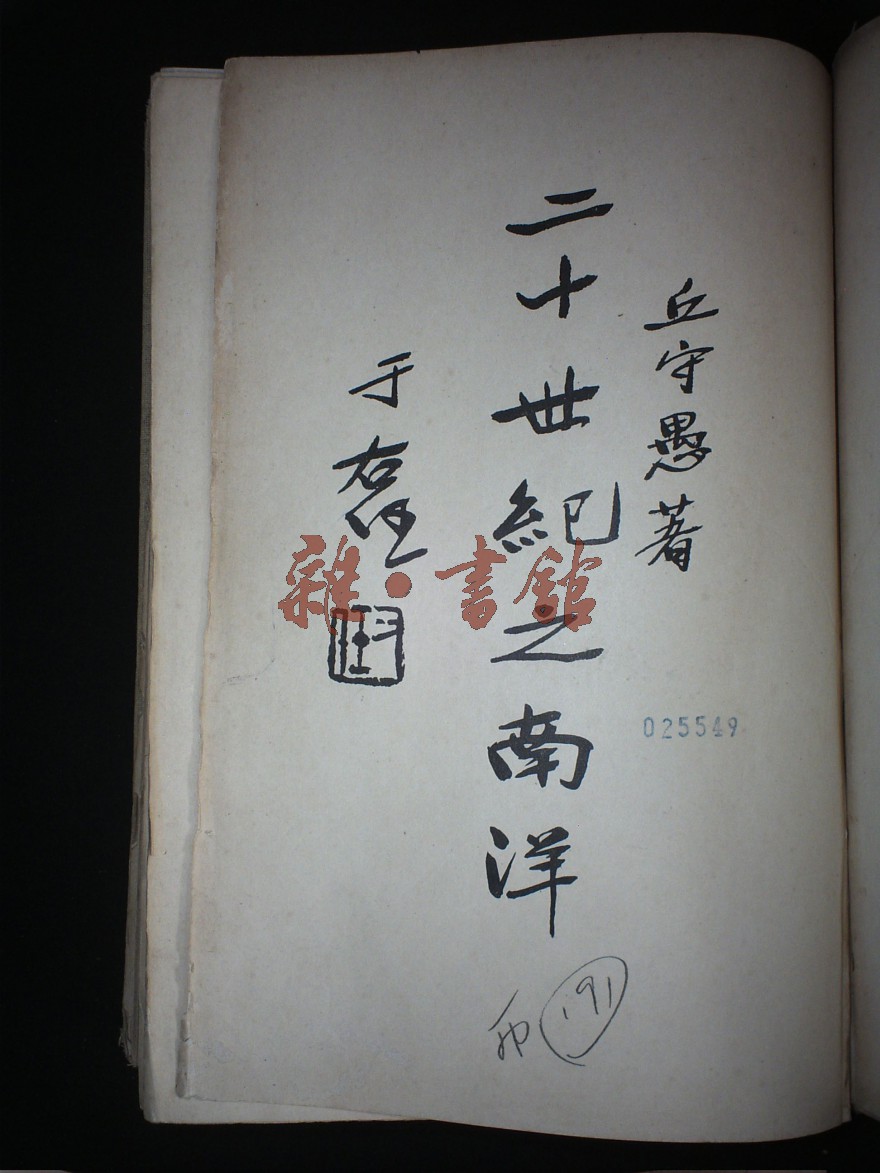 丘守愚著
二十世紀之南洋
于右任
雜·書館
025549
191